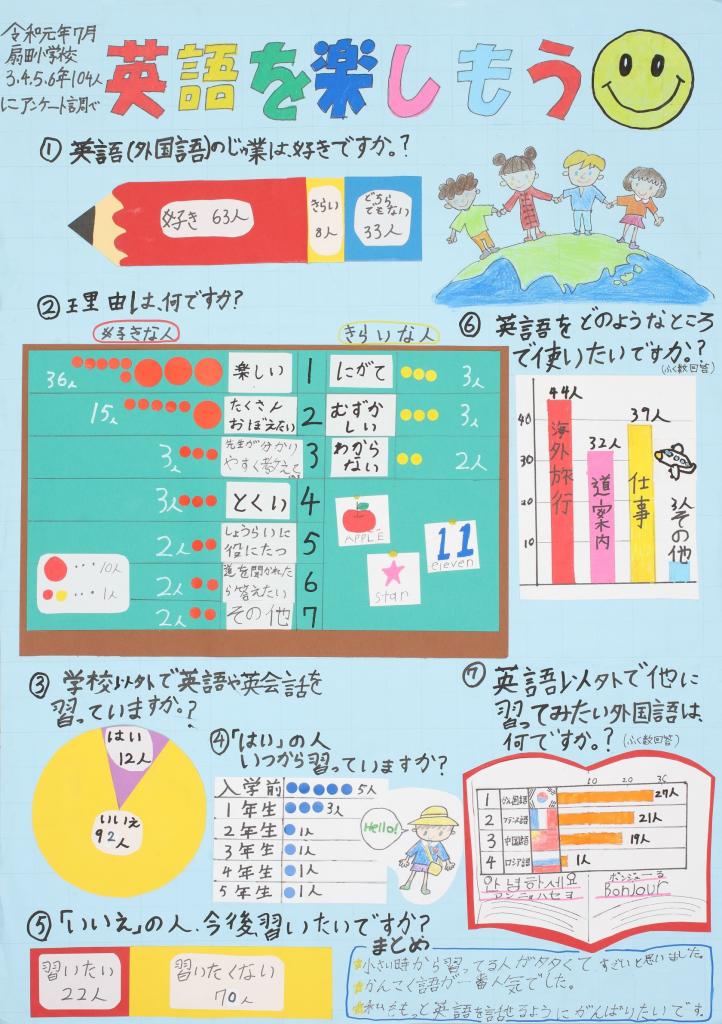 令和元年7月
扇田小学校
3.4.5.6年104人
にアンケート調べ
英語を楽しもう
① 英語(外国語)のじゅ業は、好きですか。?
好き 63人
きらい
8人
どちら
でもない
33人
② 理由は、何ですか?
好きな人
きらいな人
36人 楽しい 1 にがて 3人
15人 たくさん
おぼえたい 2 むずか
しい 3人
3人 先生が分かり
やすく教えて 3 わから
ない 2人
3人 とくい 4
2人 しょうらいに
役にたつ 5
2人 道を聞かれた
ら答えたい 6
2人 その他 7
…10人
…1人
APPLE
11
eleven
star
⑥ 英語をどのようなところ
で使いたいですか。?
(ふく数回答)
44人
32人
39人
3人
40
30
20
10
海外旅行
道案内
仕事
その他
③ 学校以外で英語や英会話を
習っていますか。?
はい
12人
いいえ
92人
④「はい」の人
いつから習っていますか?
入学前 5人
1年生 3人
2年生 1人
3年生 1人
4年生 1人
5年生 1人
Hello!
⑦ 英語以外で他に
習ってみたい外国語は、
何ですか。?
(ふく数回答)
10 20 30
1 かん国語 27人
2 フランス語 21人
3 中国語 19人
4 ロシア語 1人
안녕하세요
アンニョハセヨ
ボンジュール
Bonjour
⑤「いいえ」の人、今後、習いたいですか?
習いたい
22人
習いたくない
70人
まとめ
小さい時から習ってる人がタタくて、すごいと思いました。
かんこく語が一番人気でした。
私ももっと英語を話せるようにがんばりたいです。